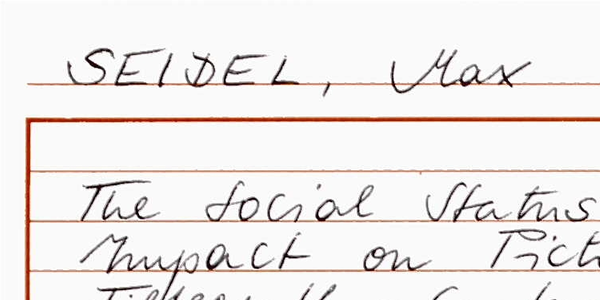 SEIDEL, Max
The Social Status
Impact on Pict